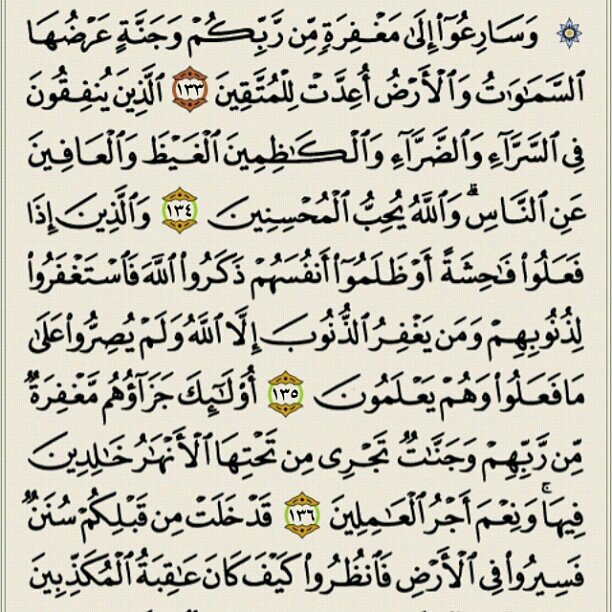 ۞ وَسَارِعُوٓا۟ إِلَىٰ مَغْفِرَةٍ مِّن رَّبِّكُمْ وَجَنَّةٍ عَرْضُهَا
ٱلسَّمَٰوَٰتُ وَٱلْأَرْضُ أُعِدَّتْ لِلْمُتَّقِينَ ١٣٣ ٱلَّذِينَ يُنفِقُونَ
فِى ٱلسَّرَّآءِ وَٱلضَّرَّآءِ وَٱلْكَٰظِمِينَ ٱلْغَيْظَ وَٱلْعَافِينَ
عَنِ ٱلنَّاسِ ۗ وَٱللَّهُ يُحِبُّ ٱلْمُحْسِنِينَ ١٣٤ وَٱلَّذِينَ إِذَا
فَعَلُوا۟ فَٰحِشَةً أَوْ ظَلَمُوٓا۟ أَنفُسَهُمْ ذَكَرُوا۟ ٱللَّهَ فَٱسْتَغْفَرُوا۟
لِذُنُوبِهِمْ وَمَن يَغْفِرُ ٱلذُّنُوبَ إِلَّا ٱللَّهُ وَلَمْ يُصِرُّوا۟ عَلَىٰ
مَا فَعَلُوا۟ وَهُمْ يَعْلَمُونَ ١٣٥ أُو۟لَٰٓئِكَ جَزَآؤُهُم مَّغْفِرَةٌ
مِّن رَّبِّهِمْ وَجَنَّٰتٌ تَجْرِى مِن تَحْتِهَا ٱلْأَنْهَٰرُ خَٰلِدِينَ
فِيهَا ۚ وَنِعْمَ أَجْرُ ٱلْعَٰمِلِينَ ١٣٦ قَدْ خَلَتْ مِن قَبْلِكُمْ سُنَنٌ
فَسِيرُوا۟ فِى ٱلْأَرْضِ فَٱنظُرُوا۟ كَيْفَ كَانَ عَٰقِبَةُ ٱلْمُكَذِّبِينَ